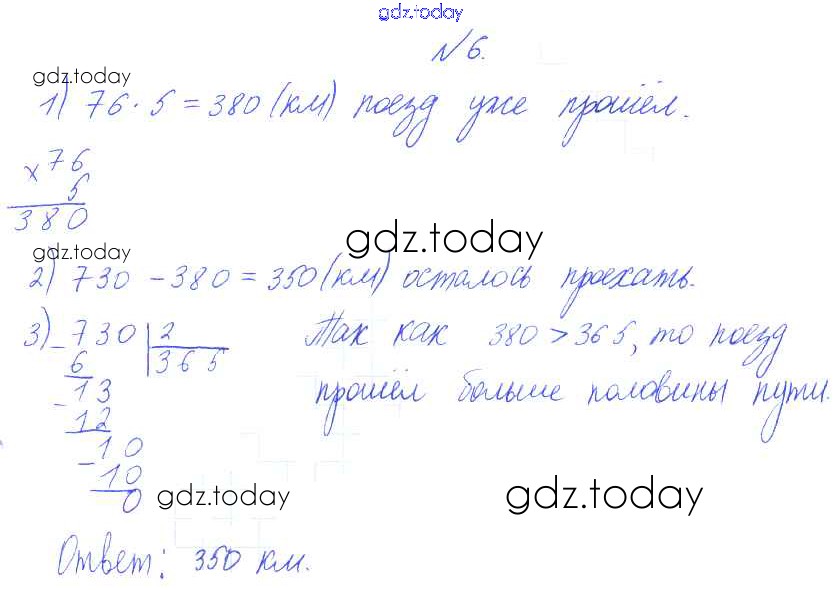 gdz.today
№6.
gdz.today
1) 76 · 5 = 380 (км) поезд уже прошёл.
× 76
5
380
gdz.today
gdz.today
2) 730 - 380 = 350 (км) осталось проехать.
3) 730 | 2
365
- 6
13
- 12
10
- 10
0
Так как 380 > 365, то поезд
прошёл больше половины пути.
gdz.today
gdz.today
Ответ: 350 км.